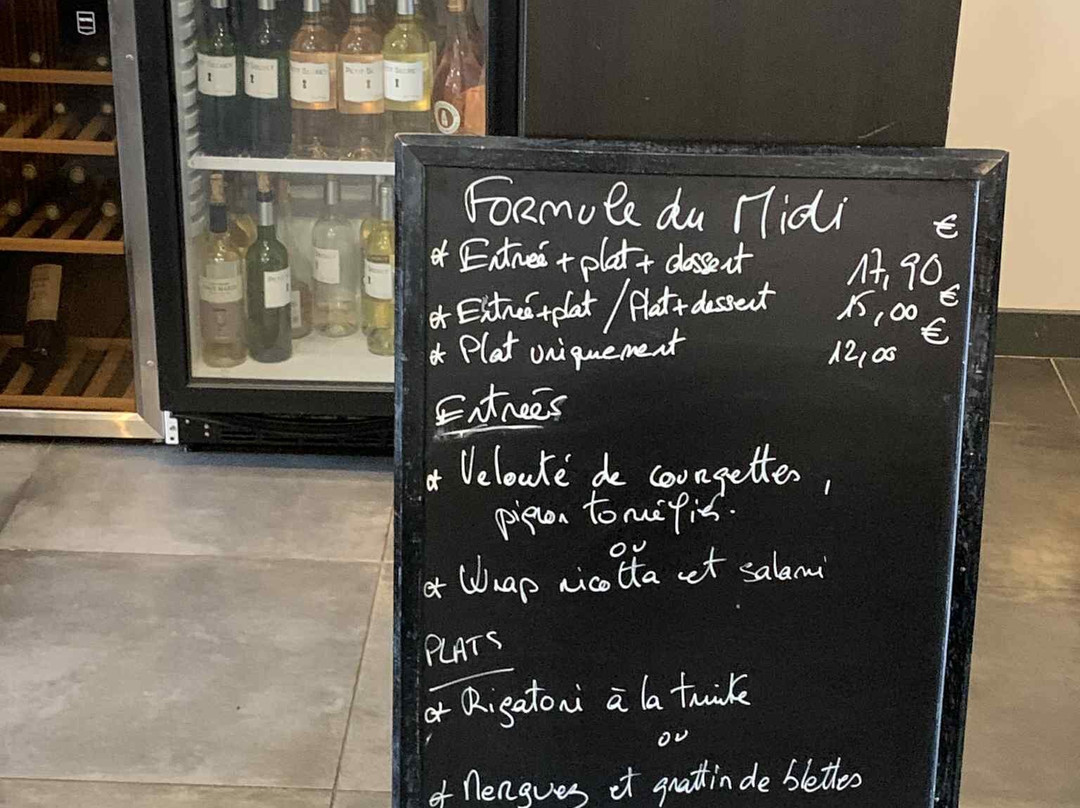 PETIT SECRET
Formule du Midi
* Entrée + plat + dessert 17,90 €
* Entrée+plat / Plat+dessert 15,00 €
* Plat uniquement 12,00 €
Entreés
* Velouté de courgettes,
pignon torréfiés.
ou
* Wrap ricotta et salami
PLATS
* Rigatoni à la truite
ou
* Merguez et grattin de blettes